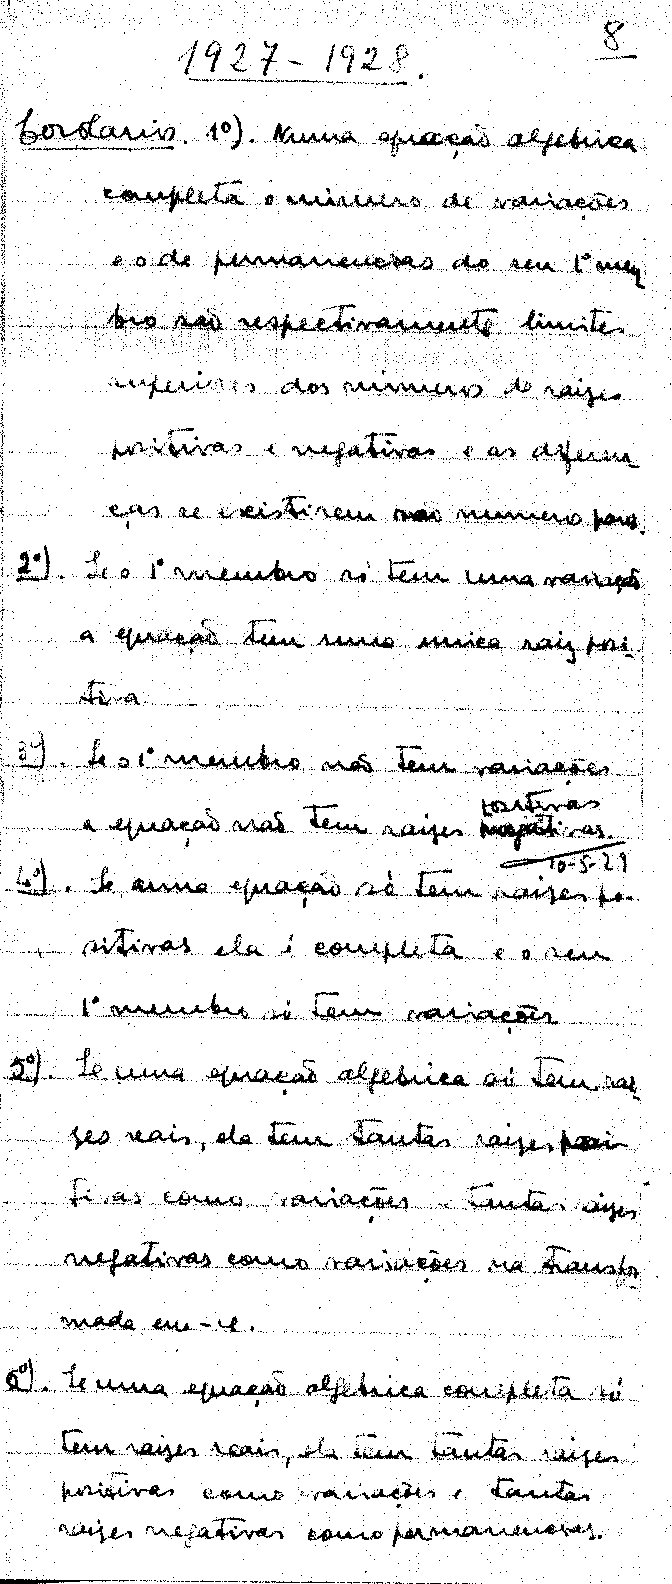 8
1927-1928.
Corolario. 1º). Numa equação algebrica
completa o número de variações
e o de permanencias do seu 1º mem
bro são respectivamente limites
superiores dos números de raizes
positivas e negativas e as diferen
ças se existirem são número par.
2º). Se o 1º membro só tem uma variação
a equação tem uma unica raiz posi-
tiva
3º). Se o 1º membro não tem variações
positivas
a equação não tem raizes negativas.
10-5-29
4º). Se uma equação só tem raizes po-
sitivas ela é completa e o seu
1º membro só tem variações
5º). Se uma equação algebrica só tem rai
zes reais, ela tem tantas raizes posi
tivas como variações e tantas raizes
negativas como variações na transfor
mada em -x.
6º). Se uma equação algebrica completa só
tem raizes reais, ela tem tantas raizes
positivas como variações e tantas
raizes negativas como permanencias.